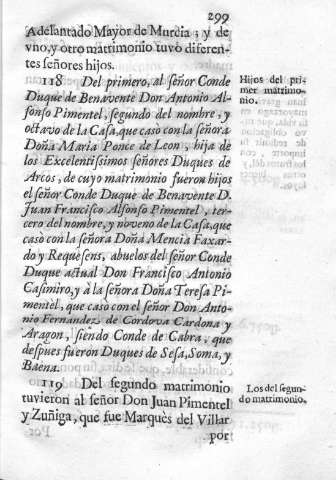 299
Adelantado Mayor de Murcia; y de
vno, y otro matrimonio tuvo diferen-
tes señores hijos.
118 Del primero, al señor Conde
Duque de Benavente Don Antonio Al-
fonso Pimentel, segundo del nombre, y
octavo de la Casa, que casò con la señora
Doña Maria Ponce de Leon, hija de
los Excelentissimos señores Duques de
Arcos, de cuyo matrimonio fueron hijos
el señor Conde Duque de Benavente D.
Juan Francisco Alfonso Pimentel, ter-
cero del nombre, y noveno de la Casa, que
casò con la señora Doña Mencia Faxar-
do y Requesens, abuelos del señor Conde
Duque actual Don Francisco Antonio
Casimiro, y à la señora Doña Teresa Pi-
mentel, que casò con el señor Don Anto-
nio Fernandez de Cordova Cardona y
Aragon, siendo Conde de Cabra, que
despues fueron Duques de Sesa, Soma, y
Baena.
119 Del segundo matrimonio
tuvieron al señor Don Juan Pimentel
y Zuñiga, que fue Marquès del Villar
por
Hijos del pri-
mer matrimo-
nio.
Los del segun-
do matrimonio.